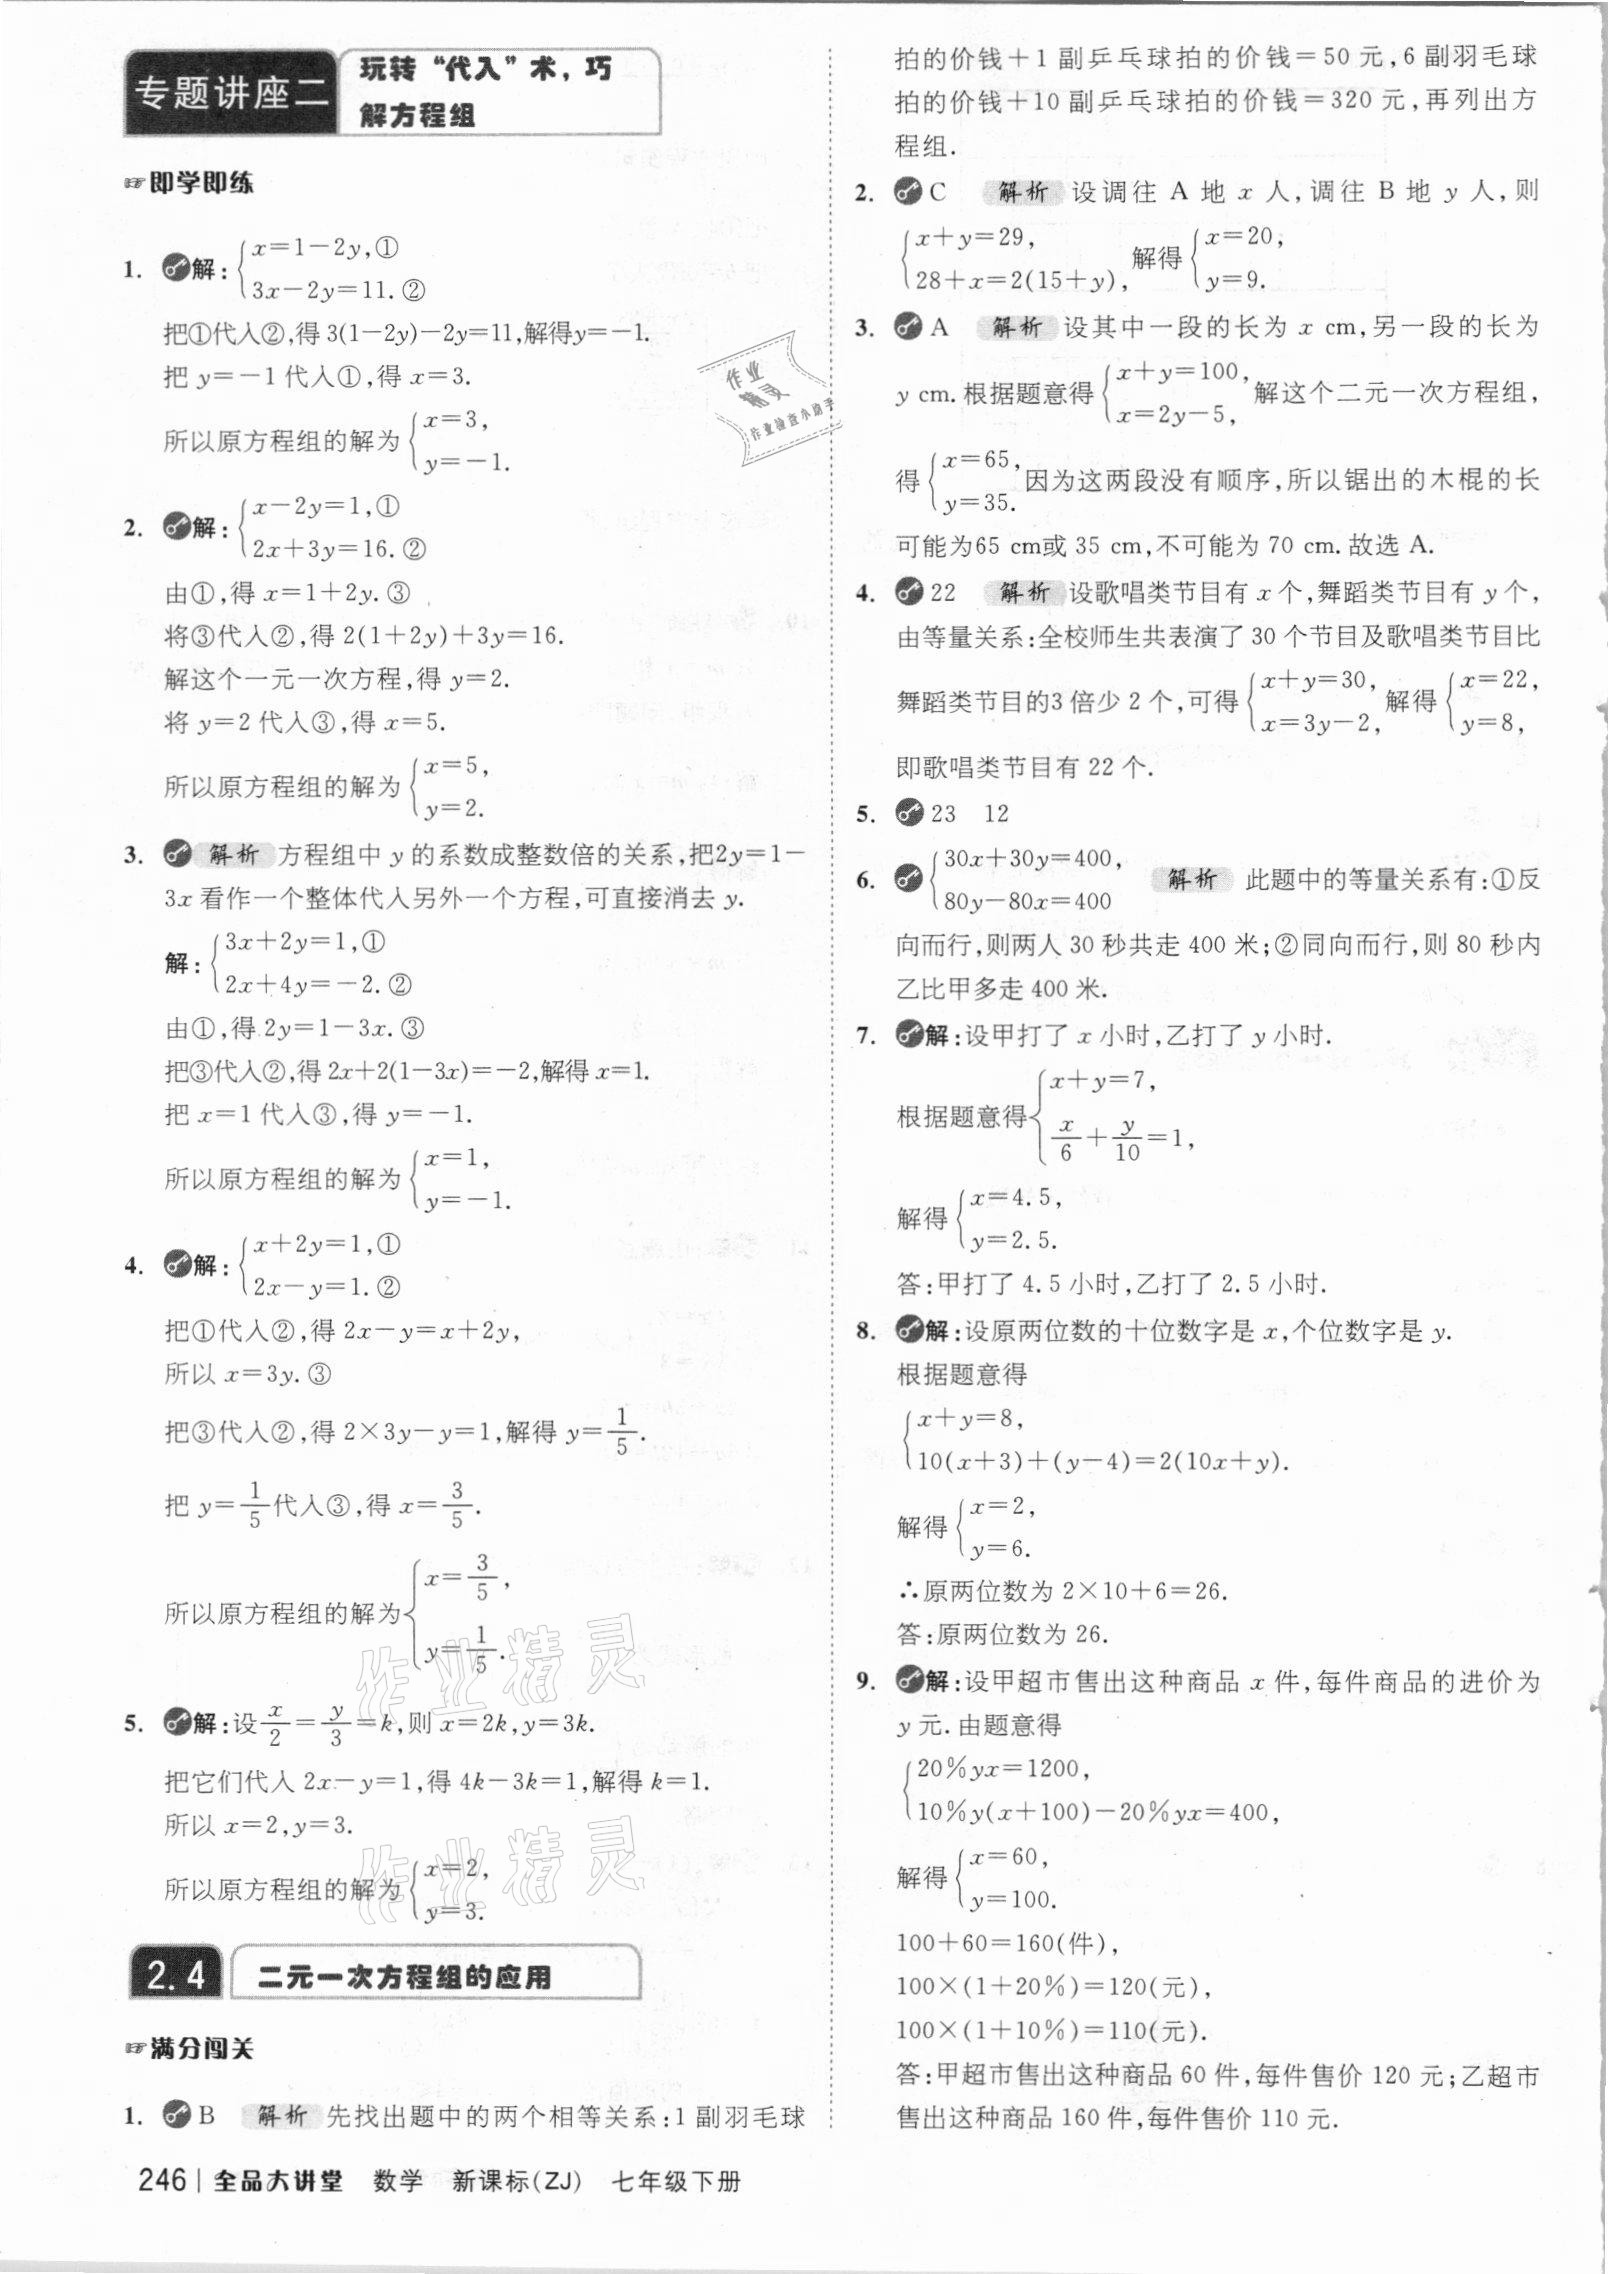 专题讲座二
玩转“代入”术，巧
解方程组
☞即学即练
1. 解：{x=1-2y,①
3x-2y=11.②
把①代入②,得3(1-2y)-2y=11,解得y=-1.
把 y=-1代入①,得 x=3.
所以原方程组的解为{x=3,
y=-1.
2. 解：{x-2y=1,①
2x+3y=16.②
由①,得 x=1+2y.③
将③代入②,得2(1+2y)+3y=16.
解这个一元一次方程,得 y=2.
将 y=2代入③,得 x=5.
所以原方程组的解为{x=5,
y=2.
3. 解析 方程组中 y 的系数成整数倍的关系,把2y=1-
3x看作一个整体代入另外一个方程,可直接消去 y.
解：{3x+2y=1,①
2x+4y=-2.②
由①,得2y=1-3x.③
把③代入②,得2x+2(1-3x)=-2,解得x=1.
把 x=1代入③,得 y=-1.
所以原方程组的解为{x=1,
y=-1.
4. 解：{x+2y=1,①
2x-y=1.②
把①代入②,得2x-y=x+2y,
所以 x=3y.③
把③代入②,得2×3y-y=1,解得 y=1/5.
把 y=1/5代入③,得 x=3/5.
所以原方程组的解为{x=3/5,
y=1/5.
5. 解:设x/2=y/3=k,则 x=2k,y=3k.
把它们代入 2x-y=1,得 4k-3k=1,解得 k=1.
所以 x=2,y=3.
所以原方程组的解为{x=2,
y=3.
2.4 二元一次方程组的应用
☞满分闯关
1. B 解析 先找出题中的两个相等关系:1副羽毛球
拍的价钱+1副乒乓球拍的价钱=50元,6副羽毛球
拍的价钱+10副乒乓球拍的价钱=320元,再列出方
程组.
2. C 解析 设调往 A 地 x 人,调往 B 地 y 人,则
{x+y=29,
28+x=2(15+y),解得{x=20,
y=9.
3. A 解析 设其中一段的长为 x cm,另一段的长为
y cm.根据题意得{x+y=100,
x=2y-5,解这个二元一次方程组,
得{x=65,
y=35.因为这两段没有顺序,所以锯出的木棍的长
可能为65 cm或 35 cm,不可能为 70 cm.故选 A.
4. 22 解析 设歌唱类节目有 x 个,舞蹈类节目有 y 个,
由等量关系:全校师生共表演了 30 个节目及歌唱类节目比
舞蹈类节目的3倍少2个,可得{x+y=30,
x=3y-2,解得{x=22,
y=8,
即歌唱类节目有 22 个.
5. 23 12
6. {30x+30y=400,
80y-80x=400 解析 此题中的等量关系有:①反
向而行,则两人 30 秒共走 400 米;②同向而行,则 80 秒内
乙比甲多走 400 米.
7. 解:设甲打了 x 小时,乙打了 y 小时.
根据题意得{x+y=7,
x/6+y/10=1,
解得{x=4.5,
y=2.5.
答:甲打了 4.5 小时,乙打了 2.5 小时.
8. 解:设原两位数的十位数字是 x,个位数字是 y.
根据题意得
{x+y=8,
10(x+3)+(y-4)=2(10x+y).
解得{x=2,
y=6.
∴原两位数为 2×10+6=26.
答:原两位数为 26.
9. 解:设甲超市售出这种商品 x 件,每件商品的进价为
y 元.由题意得
{20%yx=1200,
10%y(x+100)-20%yx=400,
解得{x=60,
y=100.
100+60=160(件),
100×(1+20%)=120(元),
100×(1+10%)=110(元).
答:甲超市售出这种商品 60 件,每件售价 120 元;乙超市
售出这种商品 160 件,每件售价 110 元.
246 | 全品大讲堂 数学 新课标(ZJ) 七年级下册
作业
精灵
作业检查小助手
作业精灵
作业精灵